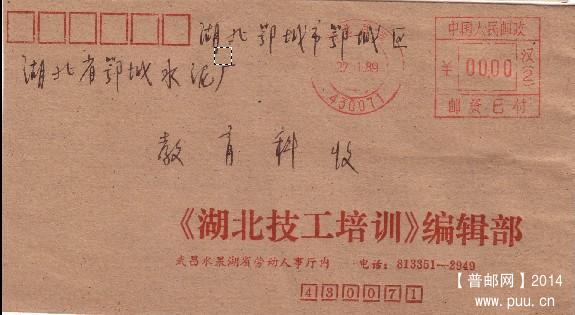 湖北鄂城市鄂城区
湖北省鄂城水泥厂
教育科收
27.1.89
430071
中国人民邮政
￥ 0000 汉(2)
邮资已付
《湖北技工培训》编辑部
武昌水果湖省劳动人事厅内 电话：813351—2949
430071
【普邮网】2014
www.puu.cn